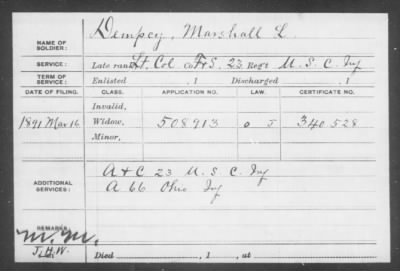 NAME OF SOLDIER: Dempcy, Marshall L.
SERVICE: Late rank Lt. Col Co. F & S, 23 Regt U. S. C. Inf
TERM OF SERVICE: Enlisted , 1 Discharged , 1
DATE OF FILING. CLASS. APPLICATION NO. LAW. CERTIFICATE NO.
Invalid,
1891 Mar 16 Widow, 508913 o J 340528
Minor,
ADDITIONAL SERVICES: A & C 23 U. S. C. Inf
A 66 Ohio Inf
REMARKS:
M. M.
J. H. W.
Died , 1 , at